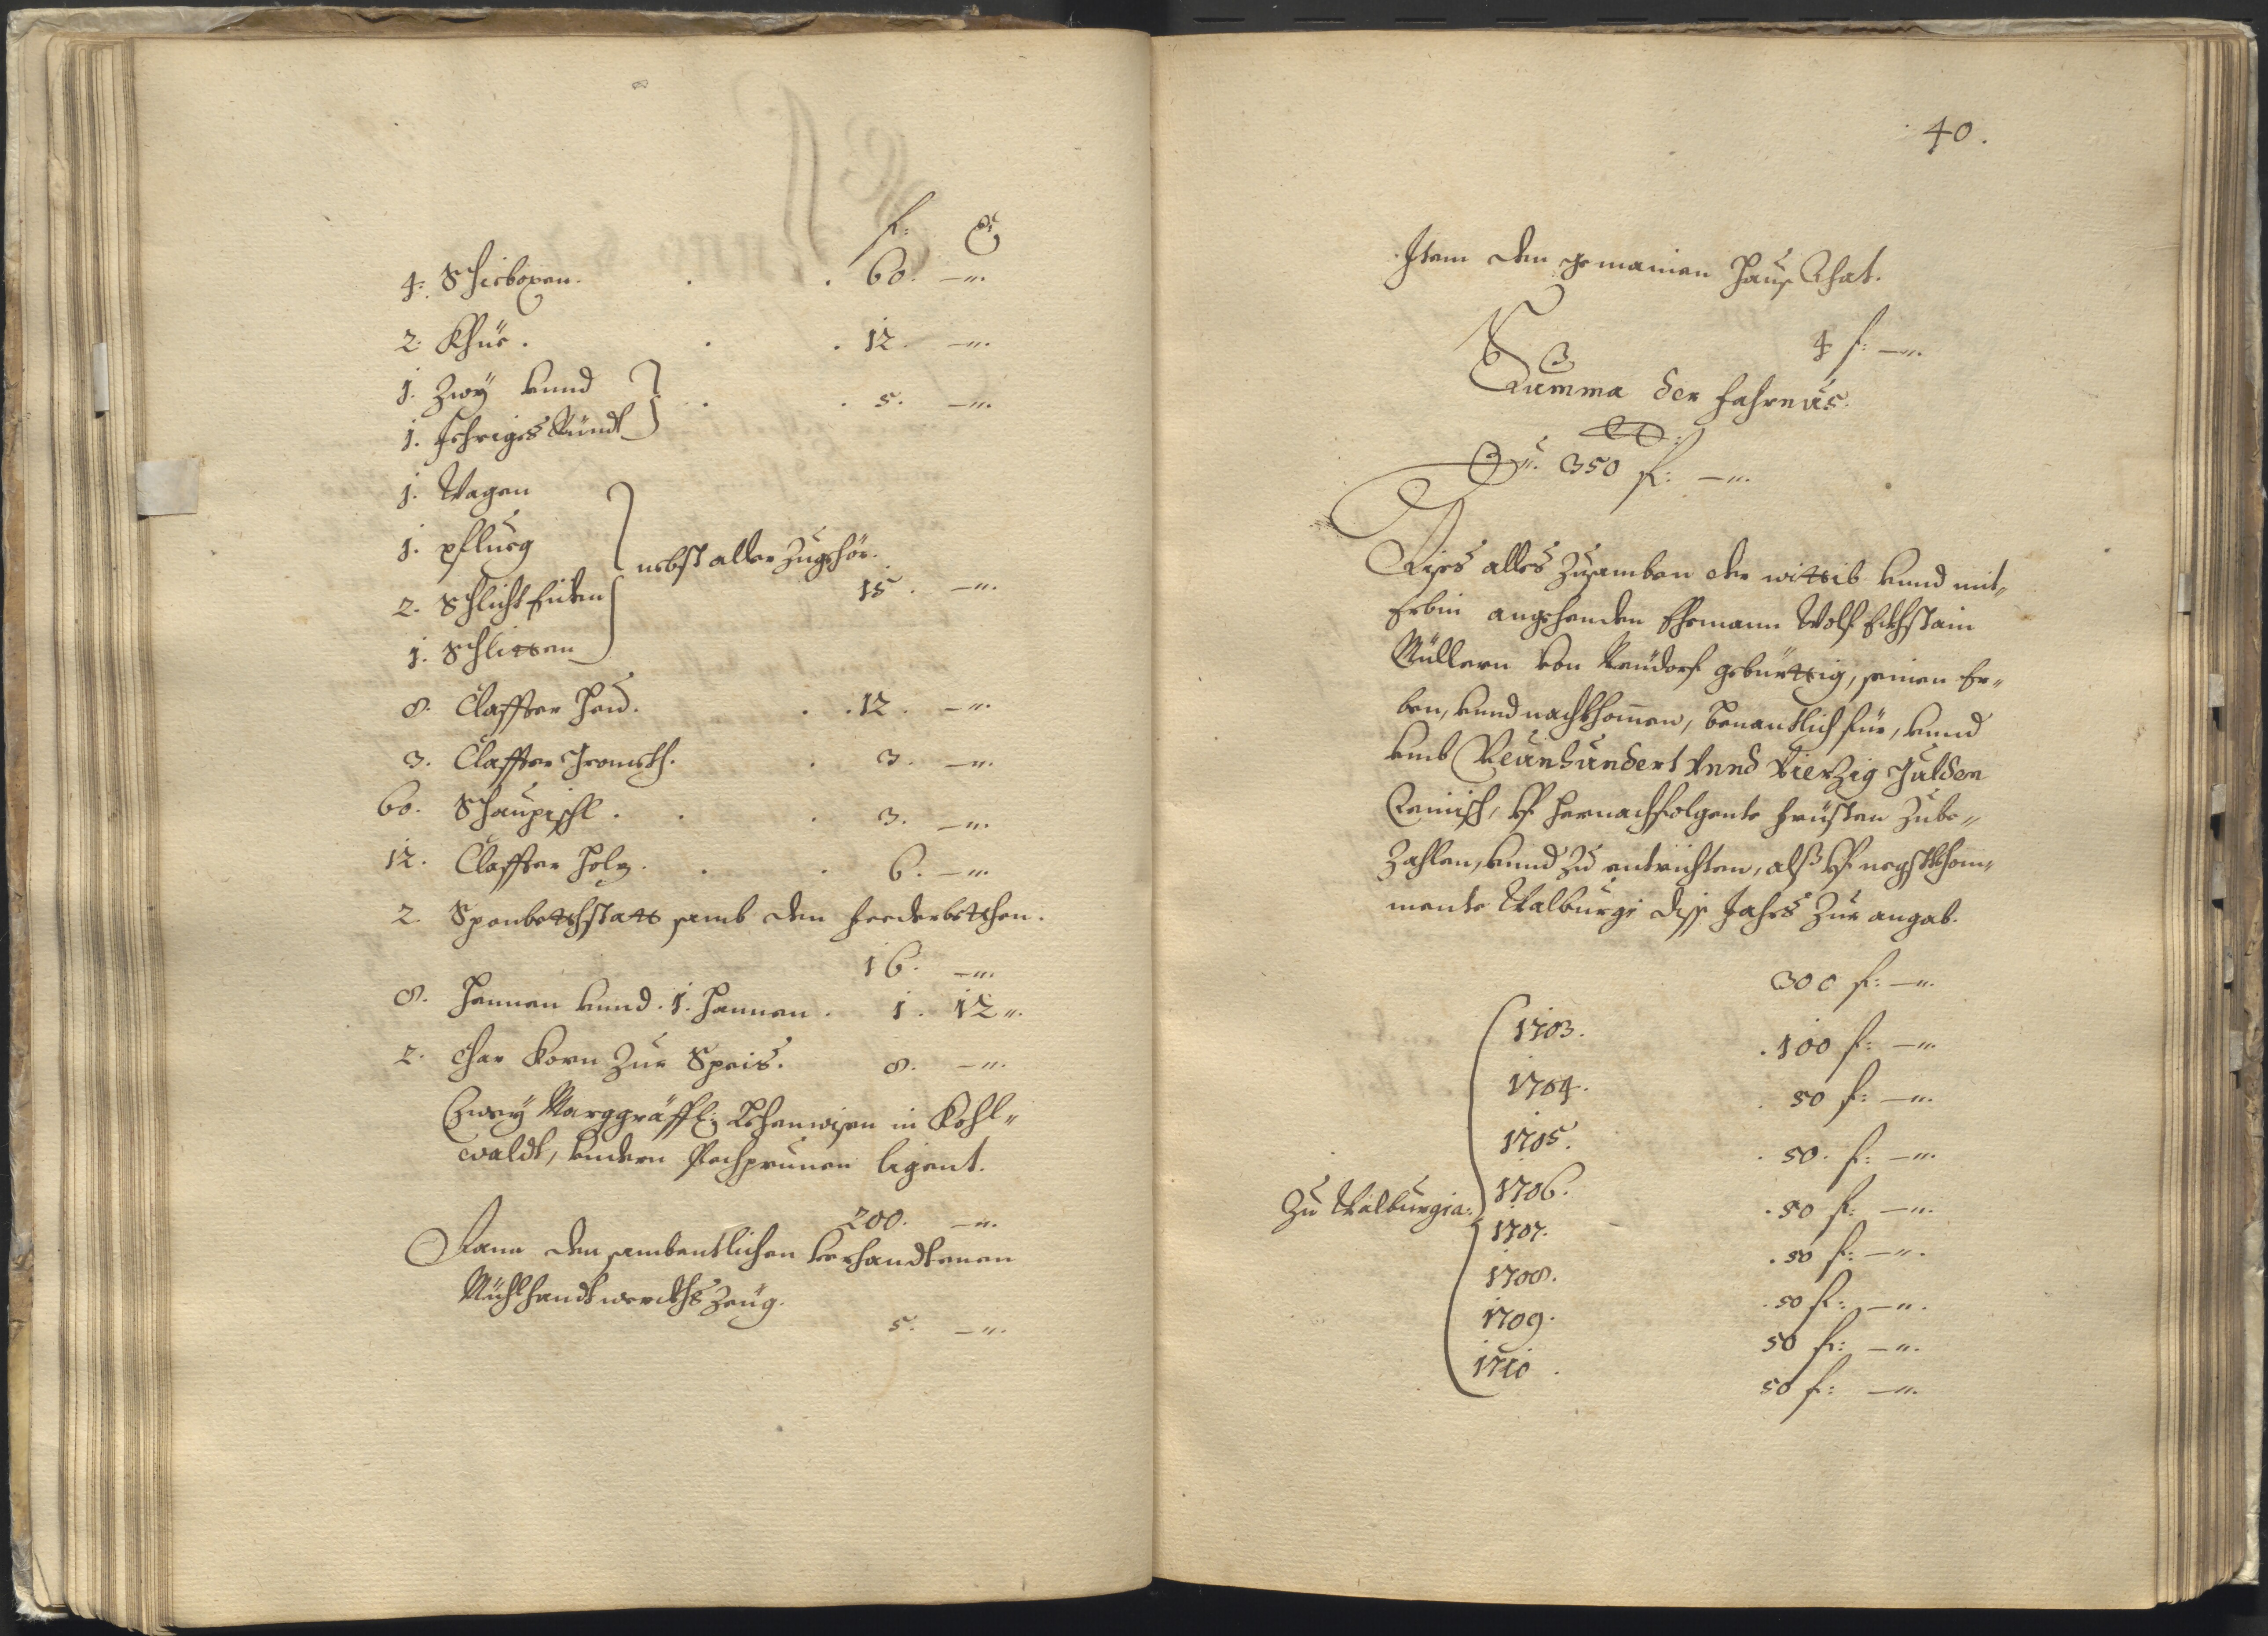 f: x
4. Schiboxen. . . 60. —„.
2. Khüe. . . 12. —„.
1. Zwÿ vnnd
1. Jehriges Ründt . . 5. —„.
1. Wagen
1. pflueg
2. Schlicht Eiden
1. Schlitten
nebst aller Zugehör.
15. —„.
8. Claffter Heü. . . 12. —„.
3. Claffter Grometh. . 3. —„.
60. Schaupischl. . . 3. —„.
12. Claffter Holz. . . 6. —„.
2. Sponbettstatt samb den feederbetthen.
16. —„.
8. Hennen vnnd. 1. Hannen. 1. 12„.
2. Char Korn Zur Speis. 8. —„.
Zweÿ Marggräffl: Lehenwisen in Kohl„
waldt, vndern Pechprunen ligent.
200. —„.
Dann den sambentlichen verhandtenen
Mühlhandtwerckhs Zeüg.
5. —„.
40.
Item den gemainen Haus Rhat.
4 f: —„.
Summa der fahrnus.
Id est
350 f: —„.
Dises alles Zusamben der wittib vnnd mit„
Erbin angehenden Ehemann Wolf Eckhstain
Müllern von Neudorf gebürttig, seinen Er„
ben, vnnd nachkhomen, benantlich für, vnnd
vmb Neünhundert Vnnd Vierzig Gulden
Reinisch, vf hernachfolgente fristen Zube„
Zahlen, vnnd Zu entrichten, alß vf negstkhom„
mente Walburgi diß Jahrs Zur angab.
300 f: —„.
Zu Walburgia:
1703. . 100 f: —„.
1704. . 50 f: —„.
1705. . 50. f: —„.
1706. . 50 f: —„.
1707. . 50 f: —„.
1708. . 50 f: —„.
1709. 50 f: —„.
1710. 50 f: —„.